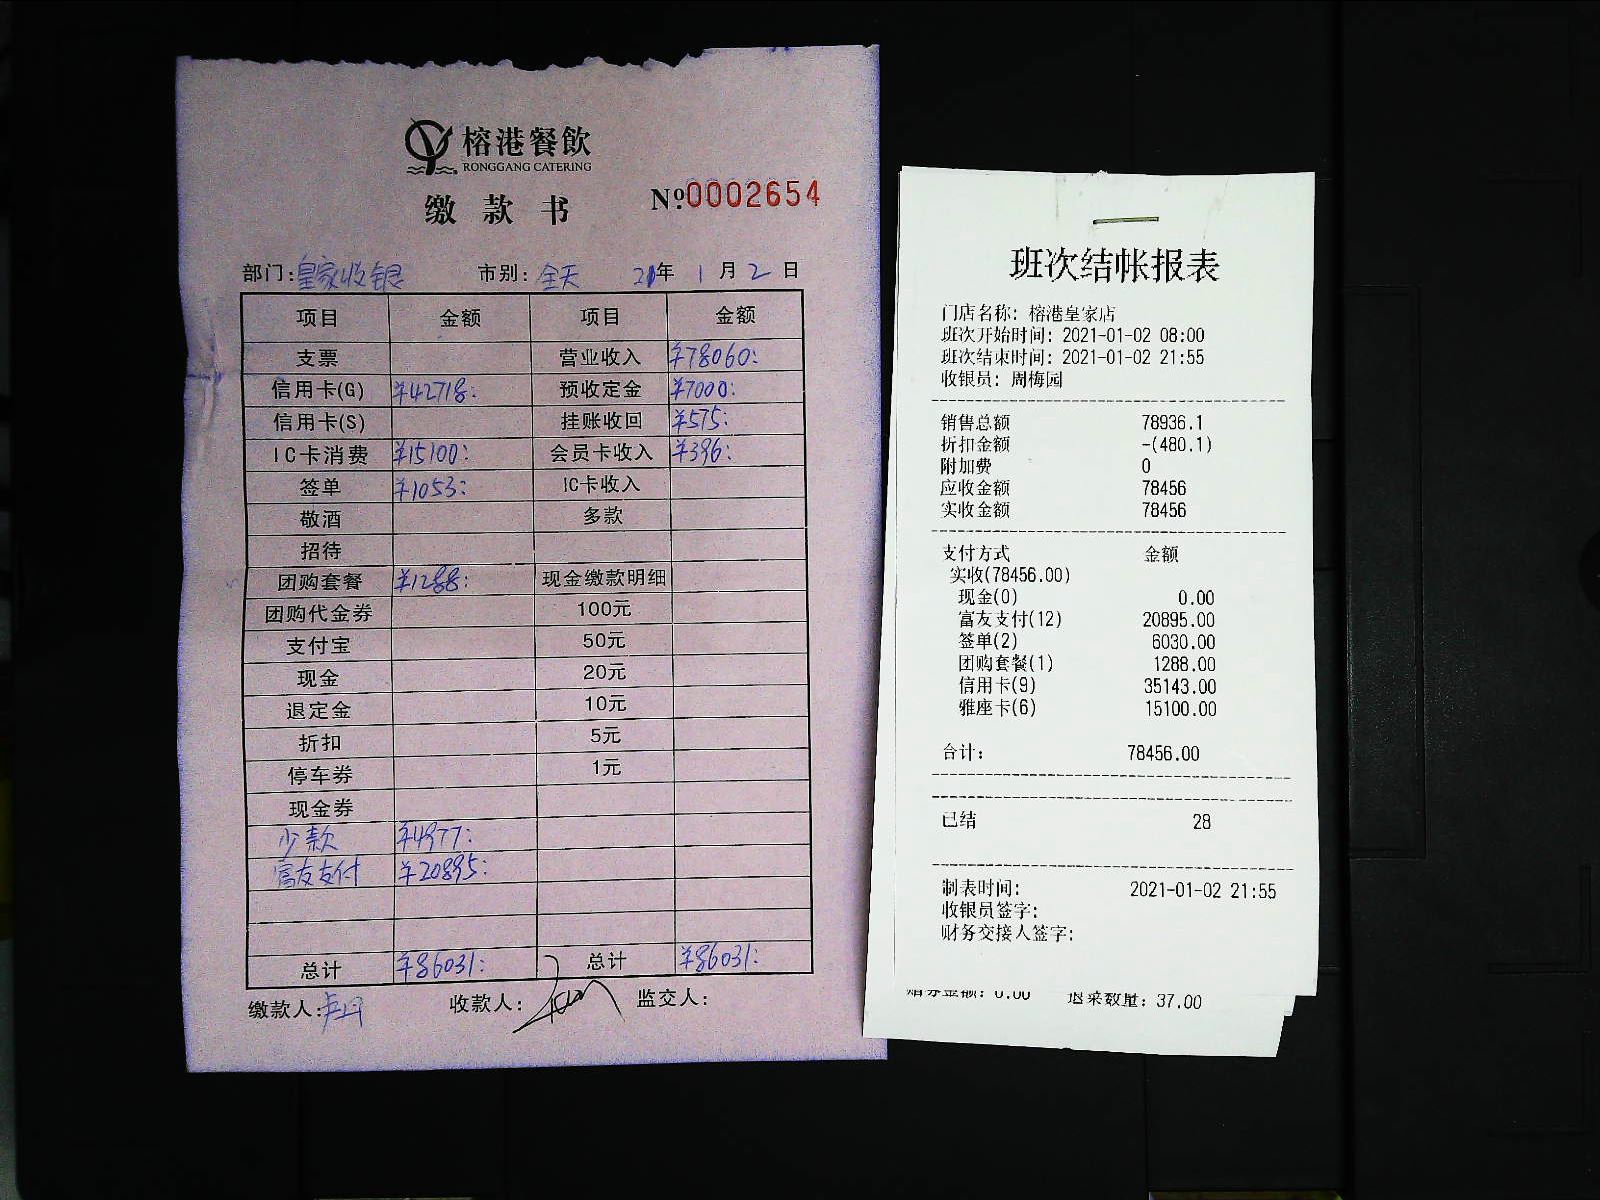 榕港餐飲
RONGGANG CATERING
缴款书 №0002654
部门:皇家收银 市别:全天 21年1月2日
项目 金额 项目 金额
支票 营业收入 ¥78060:
信用卡(G) ¥42718: 预收定金 ¥7000:
信用卡(S) 挂账收回 ¥575:
IC卡消费 ¥15100: 会员卡收入 ¥396:
签单 ¥1053: IC卡收入
敬酒 多款
招待
团购套餐 ¥1288: 现金缴款明细
团购代金券 100元
支付宝 50元
现金 20元
退定金 10元
折扣 5元
停车券 1元
现金券
少款 ¥4977:
富友支付 ¥20895:
总计 ¥86031: 总计 ¥86031:
缴款人: 收款人: 监交人:
班次结帐报表
门店名称: 榕港皇家店
班次开始时间: 2021-01-02 08:00
班次结束时间: 2021-01-02 21:55
收银员: 周梅园
销售总额 78936.1
折扣金额 -(480.1)
附加费 0
应收金额 78456
实收金额 78456
支付方式 金额
实收(78456.00)
现金(0) 0.00
富友支付(12) 20895.00
签单(2) 6030.00
团购套餐(1) 1288.00
信用卡(9) 35143.00
雅座卡(6) 15100.00
合计: 78456.00
已结 28
制表时间: 2021-01-02 21:55
收银员签字:
财务交接人签字:
金额: 0.00 退菜数量: 37.00